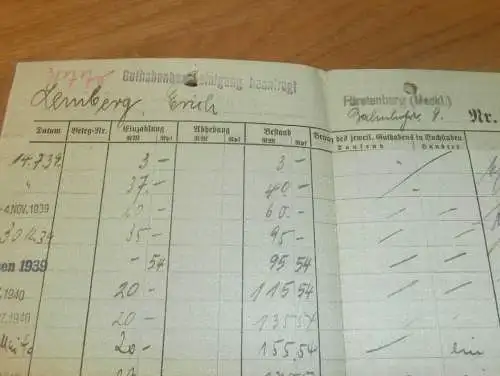 Guthabenbescheinigung beantragt
Lemberg, Erich
Fürstenberg (Meckl.)
8. Nr.
Datum Beleg-Nr. Einzahlung Abhebung Bestand des jeweil. Guthabens in Buchstaben
RM Rpf RM Rpf RM Rpf Tausend Hundert
14.7.39. 3 – 3 –
" 37. – 40. –
-4. NOV. 1939 60. –
30.12.39 35 – 95 –
sen 1939 – 54 95 54
1940 20 – 115 54
1940 20 – 135 54
20 – 155,54 ein